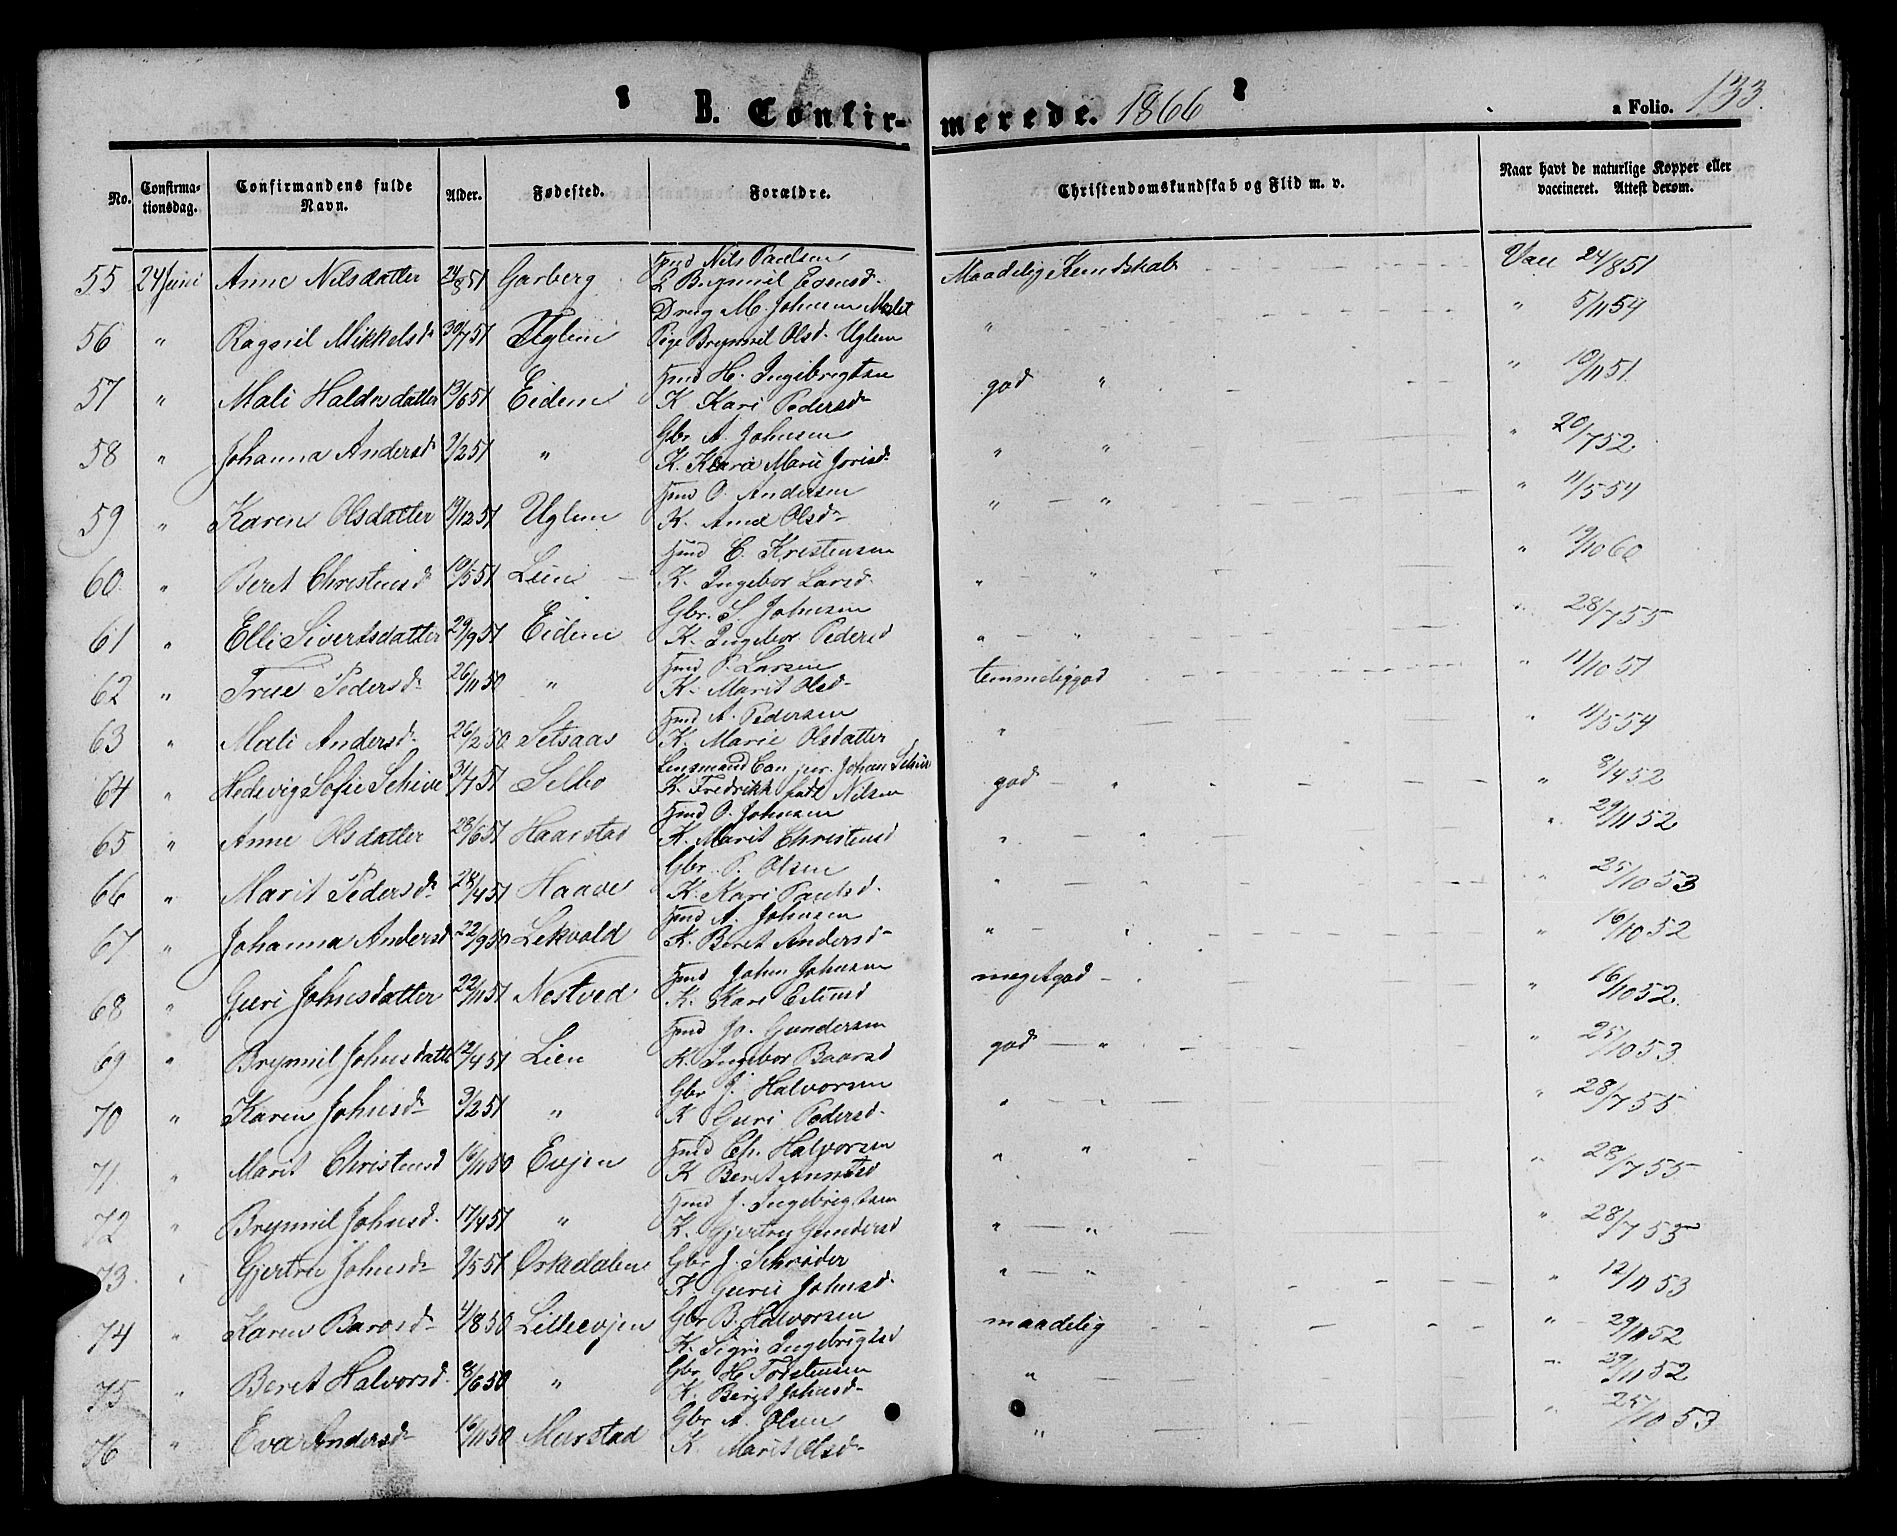 B. Confirmerede. 1866
a Folio. 133.
No. Confirmationsdag. Confirmandens fulde Navn. Alder. Fødested. Forældre. Christendomskundskab og Flid m. v. Naar havt de naturlige Kopper eller vaccineret. Attest derom.
55 24 Juni Anne Nilsdatter 24/8 51 Garberg Hmd Nils Paulsen Maadelig Kundskab Vacc 24/8 51
Brynnil Evensd.
56 " Ragnil Mikkelsd. 30/7 51 Uglem Dreng M. Johnsen Moslet " " 5/11 54
Pige Brynnil Olsd. Uglem
57 " Mali Haldosdatter 13/6 51 Eidem Hmd H. Ingebrigtsen god " " 10/11 51
K Kari Pedersd.
58 " Johanna Andersd 2/2 51 " Gbr. A. Johnsen " " " 20/7 52
K. Marie Jorisd.
59 " Karen Olsdatter 19/12 51 Uglem Hmd O. Andersen " " " 11/5 54
K. Anne Olsd.
60 " Beret Christensd. 10/5 51 Lien Hmd C. Kristensen " " " 19/10 60
K. Ingebor Larsd.
61 " Elli Sivertsdatter 29/9 51 Eidem Gbr. S. Johnsen " " " 28/7 55
K. Ingebor Pedersd
62 " True Pedersd. 26/11 50 " Hmd P. Larsen temmelig god " 11/10 51
K. Marit Olsd.
63 " Mali Andersd. 26/2 50 Setsaas Hmd A. Pedersen " " 11/5 54
K. Marie Olsdatter
64 " Hedevig Sofie Schive 31/7 51 Selbo Lensmand Johan Schive god " " 8/4 52
K. Fredrikk Nilsen
65 " Anne Olsdatter 28/6 51 Haarstad Hmd O. Johnsen " " " 29/11 52
K. Marit Christensd
66 " Marit Pedersd. 28/4 51 Haave Gbr. P. Olsen " " " 25/10 53
K. Kari Paulsd.
67 " Johanna Andersd 22/9 50 Lekvold Hmd A. Johnsen " " " 16/10 52
K. Beret Andersd.
68 " Guri Johnsdatter 22/11 51 Nestved Hmd John Johnsen meget god " 16/10 52.
K. Kari Estensd
69 " Brynnil Johnsdatt 12/4 51 Lien Hmd Jo. Gundersen god " " 25/10 53
K. Ingebor Baarsd
70 " Karen Johnsd. 3/2 51 " Gbr J. Halvorsen " " " 28/7 55
K Guri Pedersd.
71 " Marit Christensd 16/11 50 Evjen Hmd Ch. Halvorsen " " " 28/7 55
K Beret
72 " Brynnil Johnsd. 17/4 51 " Hmd J. Ingebrigtsen " " " 28/7 53
K. Gjertru Gundersd
73 " Gjertru Johnsd. 9/5 51 Orkedalen Gbr J. Schrøder " " " 12/11 53
K Guru Johnsd.
74 " Karen Barosd. 4/8 50 Lilleevjen Gbr B. Halvorsen maadelig " 29/11 52
K. Sigri Ingebrigtsd
75 " Beret Halvorsd. 8/6 50 " Gbr H. Torstensen " " 29/11 52
K. Beret Johnsd.
76 " Eva Andersd. 16/11 50 Murstad Gbr A. Olsen " " 25/10 53
K Marit Olsd.